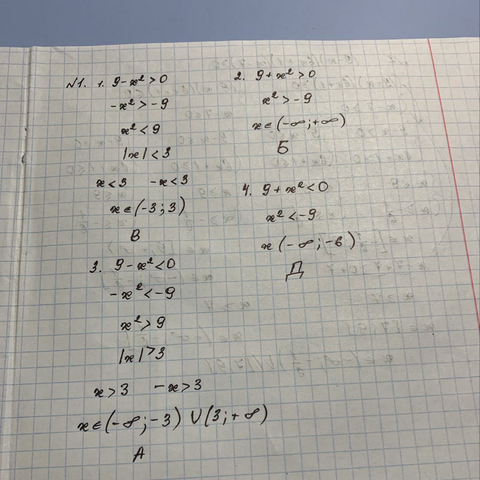 №1. 1. 9-x²>0
-x²>-9
x²<9
|x|<3
x<3 -x<3
x∈(-3;3)
В
2. 9+x²>0
x²>-9
x∈(-∞;+∞)
Б
3. 9-x²<0
-x²<-9
x²>9
|x|>3
x>3 -x>3
x∈(-∞;-3)∪(3;+∞)
А
4. 9+x²<0
x²<-9
x(-∞;-6)
Д